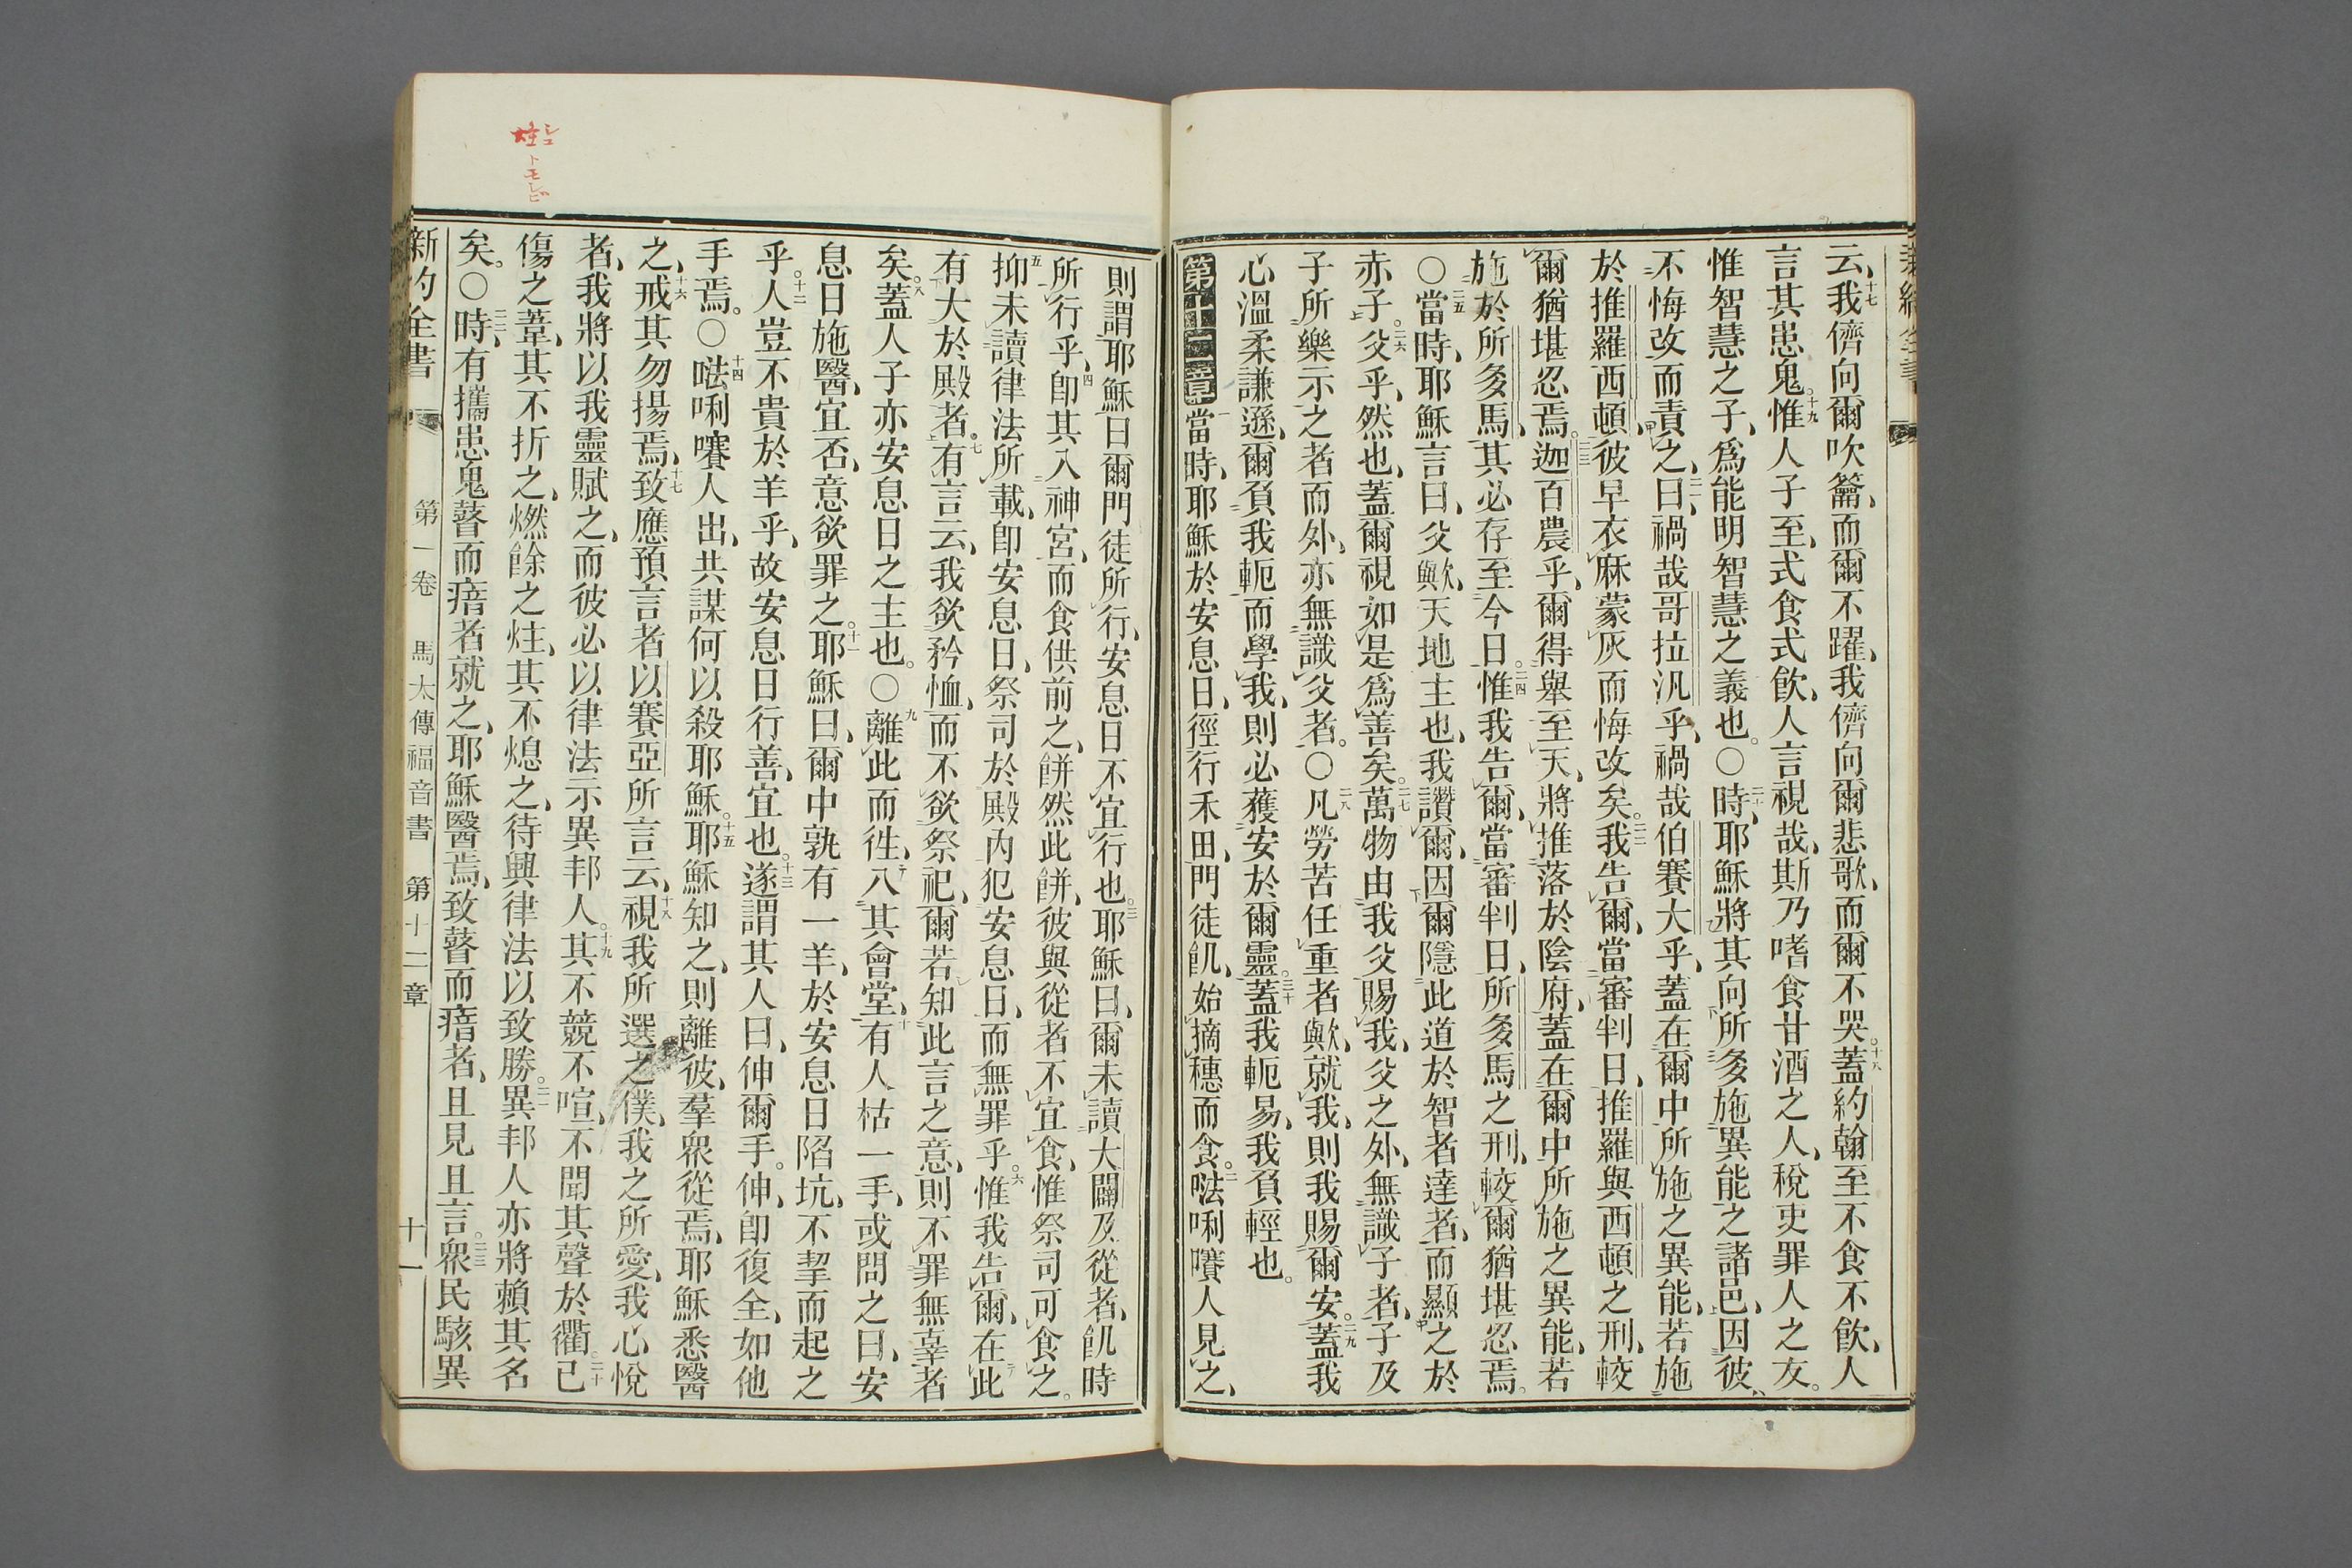 云、十七我儕向爾吹籥、而爾不躍、我儕向爾悲歌、而爾不哭。十八蓋約翰至不食不飲、人
言其患鬼。十九惟人子至、式食式飲、人言視哉、斯乃嗜食甘酒之人、稅吏罪人之友。
惟智慧之子、爲能明智慧之義也。〇二十時、耶穌將其向所多施異能之諸邑、因彼
不悔改而責之、二一曰、禍哉哥拉汎乎、禍哉伯賽大乎、蓋在爾中所施之異能、若施
於推羅西頓、彼早衣麻蒙灰而悔改矣。二二我告爾、當審判日、推羅與西頓之刑、較
爾猶堪忍焉。二三迦百農乎、爾得舉至天、將推落於陰府、蓋在爾中所施之異能、若
施於所多馬、其必存至今日。二四惟我告爾、當審判日、所多馬之刑、較爾猶堪忍焉。
〇二五當時、耶穌言曰、父歟、天地主也、我讚爾、因爾隱此道於智者達者、而顯之於
赤子。二六父乎、然也、蓋爾視如是爲善矣。二七萬物由我父賜我、父之外、無識子者、子及
子所樂示之者而外、亦無識父者。〇二八凡勞苦任重者歟、就我、則我賜爾安。二九蓋我
心溫柔謙遜、爾負我軛而學我、則必獲安於爾靈。三十蓋我軛易、我負輕也。
第十二章 一當時、耶穌於安息日、徑行禾田、門徒飢、始摘穗而食。二㗇唎㘔人見之、
則謂耶穌曰爾門徒所行、安息日不宜行也。三耶穌曰、爾未讀大闢及從者、飢時
所行乎、四卽其入神宮、而食供前之餅、然此餅、彼與從者不宜食、惟祭司可食之。
五抑未讀律法所載、卽安息日、祭司於殿內犯安息日、而無罪乎。六惟我告爾、在此
有大於殿者。七有言云、我欲矜恤、而不欲祭祀、爾若知此言之意、則不罪無辜者
矣。八蓋人子亦安息日之主也。〇九離此而徃、入其會堂、十有人枯一手、或問之曰、安
息日施醫、宜否、意欲罪之。十一耶穌曰、爾中孰有一羊、於安息日陷坑、不挈而起之
乎。十二人豈不貴於羊乎、故安息日行善、宜也。十三遂謂其人曰、伸爾手。伸、卽復全、如他
手焉。〇十四㗇唎㘔人出、共謀何以殺耶穌。十五耶穌知之、則離彼、羣衆從焉、耶穌悉醫
之、十六戒其勿揚焉、十七致應預言者以賽亞所言云、十八視我所選之僕、我之所愛、我心悅
者、我將以我靈賦之、而彼必以律法示異邦人。十九其不競不喧、不聞其聲於衢、二十已
傷之葦、其不折之、燃餘之炷、其不熄之、待興律法以致勝。二一異邦人亦將賴其名
矣。〇二二時、有攜患鬼瞽而瘖者就之、耶穌醫焉、致瞽而瘖者、且見且言。二三衆民駭異
新約全書 第一卷 馬太傳福音書 第十二章 十一
炷 シユ
トモシビ